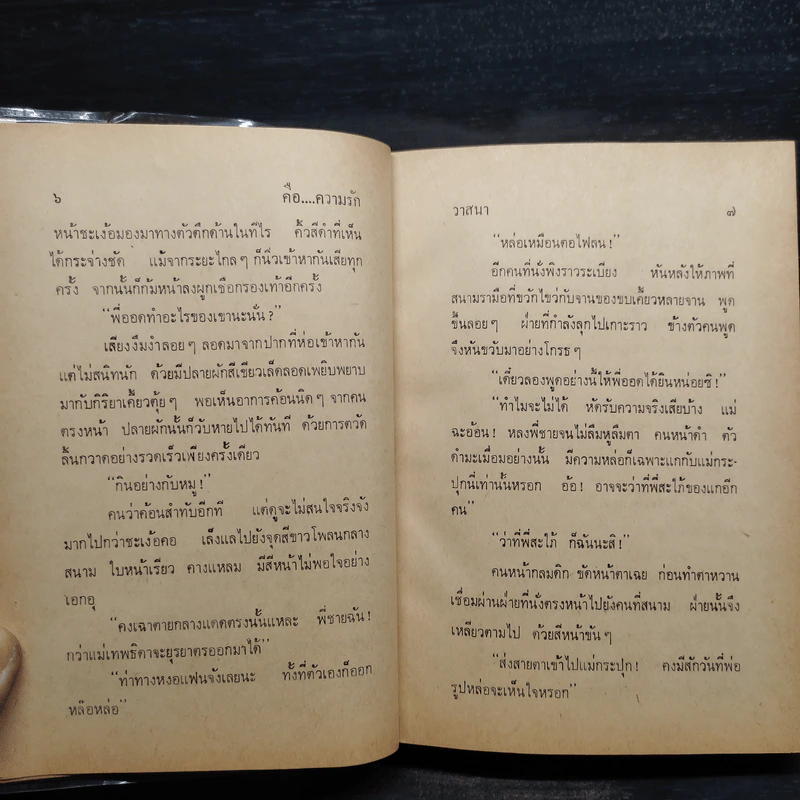 ๖ คือ....ความรัก
หน้าชะเง้อมองมาทางตัวตึกด้านในทีไร คิ้วสีดำที่เห็น
ได้กระจ่างชัด แม้จากระยะไกลๆ ก็นิ่วเข้าหากันเสียทุก
ครั้ง จากนั้นก็ก้มหน้าลงผูกเชือกรองเท้าอีกครั้ง
“พี่ออดทำอะไรของเขานะนั่น?”
เสียงงึมงำลอยๆ ลอดมาจากปากที่ห่อเข้าหากัน
แต่ไม่สนิทนัก ด้วยมีปลายผักสีเขียวเล็ดลอดเพยิบพยาบ
มากับกิริยาเคี้ยวตุ้ยๆ พอเห็นอาการค้อนนิดๆ จากคน
ตรงหน้า ปลายผักนั้นก็วับหายไปได้ทันที ด้วยการตวัด
ลิ้นกวาดอย่างรวดเร็วเพียงครั้งเดียว
“กินอย่างกับหมู!”
คนว่าค้อนสำทับอีกที แต่ดูจะไม่สนใจจริงจัง
มากไปกว่าชะเง้อคอ เล็งแลไปยังจุดสีขาวโพลนกลาง
สนาม ใบหน้าเรียว คางแหลม มีสีหน้าไม่พอใจอย่าง
เอกอุ
“คงเฉาตายกลางแดดตรงนั้นแหละ พี่ชายฉัน!
กว่าแม่เทพธิดาจะยุรยาตรออกมาได้”
“ทำท่าทางหงอแฟนจังเลยนะ ทั้งที่ตัวเองก็ออก
หล๊อหล่อ”
วาสนา ๗
“หล่อเหมือนตอไฟลน!”
อีกคนที่นั่งพิงราวระเบียง หันหลังให้ภาพที่
สนามรามือที่ขวักไขว่กับจานของขบเคี้ยวหลายจาน พูด
ขึ้นลอยๆ ฝ่ายที่กำลังลุกไปเกาะราว ข้างตัวคนพูด
จึงหันขวับมาอย่างโกรธๆ
“เดี๋ยวลองพูดอย่างนี้ให้พี่ออดได้ยินหน่อยซิ!”
“ทำไมจะไม่ได้ หัดรับความจริงเสียบ้าง แม่
ฉะอ้อน! หลงพี่ชายจนไม่ลืมหูลืมตา คนหน้าดำ ตัว
ดำมะเมื่อมอย่างนั้น มีความหล่อก็เฉพาะแกกับแม่กระ-
ปุกนี่เท่านั้นหรอก อ้อ! อาจจะว่าที่พี่สะใภ้ของแกอีก
คน”
“ว่าที่พี่สะใภ้ ก็ฉันนะสิ!”
คนหน้ากลมดิก ขัดหน้าตาเฉย ก่อนทำตาหวาน
เชื่อมผ่านฝ่ายที่นั่งตรงหน้าไปยังคนที่สนาม ฝ่ายนั้นจึง
เหลียวตามไป ด้วยสีหน้าขันๆ
“ส่งสายตาเข้าไปแม่กระปุก! คงมีสักวันที่พ่อ
รูปหล่อจะเห็นใจหรอก”